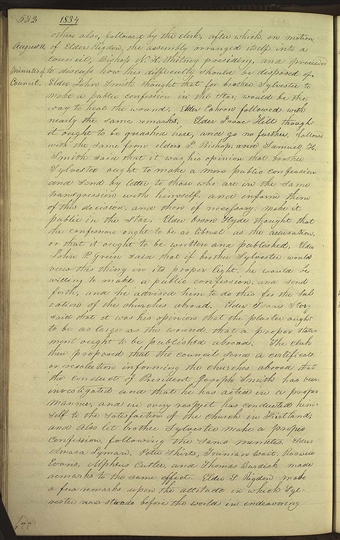 532 1834
others also, followed by the clerk, after which on motion
August 11 of Elder Rigdon, the assembly arranged itself into a
council, Bishop N. K. Whitney presiding, and proceeded
Minutes of to discuss how this difficulty should be disposed of.
Council. Elder John Smith thought that for brother Sylvester to
make a public confession in the Star, would be the
way to heal the wound. Elder Cahoon followed with
nearly the same remarks. Elder Isaac Hill thought
it ought to be quashed here, and go no further, followed
with the same from elders Bishop, and Samuel H.
Smith said that it was his opinion that brother
Sylvester ought to make a more public confession
and send by letter to those who are in the same
transgression with himself and inform them
of this decision, and then if necessary make it
public in the Star. Elder Orson Hyde thought that
the confession ought to be as liberal as the accusation,
or that it ought to be written and published. Elder
John P. Green said that if brother Sylvester would
view this thing in its proper light, he would be
willing to make a public confession and send
forth, and he advised him to do this for the sal-
vation of the churches abroad. Elder
said that it was his opinion that the plaster ought
to be as large as the wound, that a proper state-
ment ought to be published abroad. The clerk
then proposed that the council send a certificate
or resolution informing the churches abroad that
the conduct of President Joseph Smith has been
investigated and that he has acted in a proper
manner, and in every respect has conducted him-
self to the satisfaction of the church in Kirtland,
and also let brother Sylvester make a proper
confession, following the same minutes. Elders
Amasa Lyman, Peter Shirts, Truman Wait, Roswell
Evans, Alpheus Cutler, and Thomas Burdick made
remarks to the same effect. Elder S. Rigdon made
a few remarks upon the attitude in which Syl-
vester now stands before the world in endeavoring